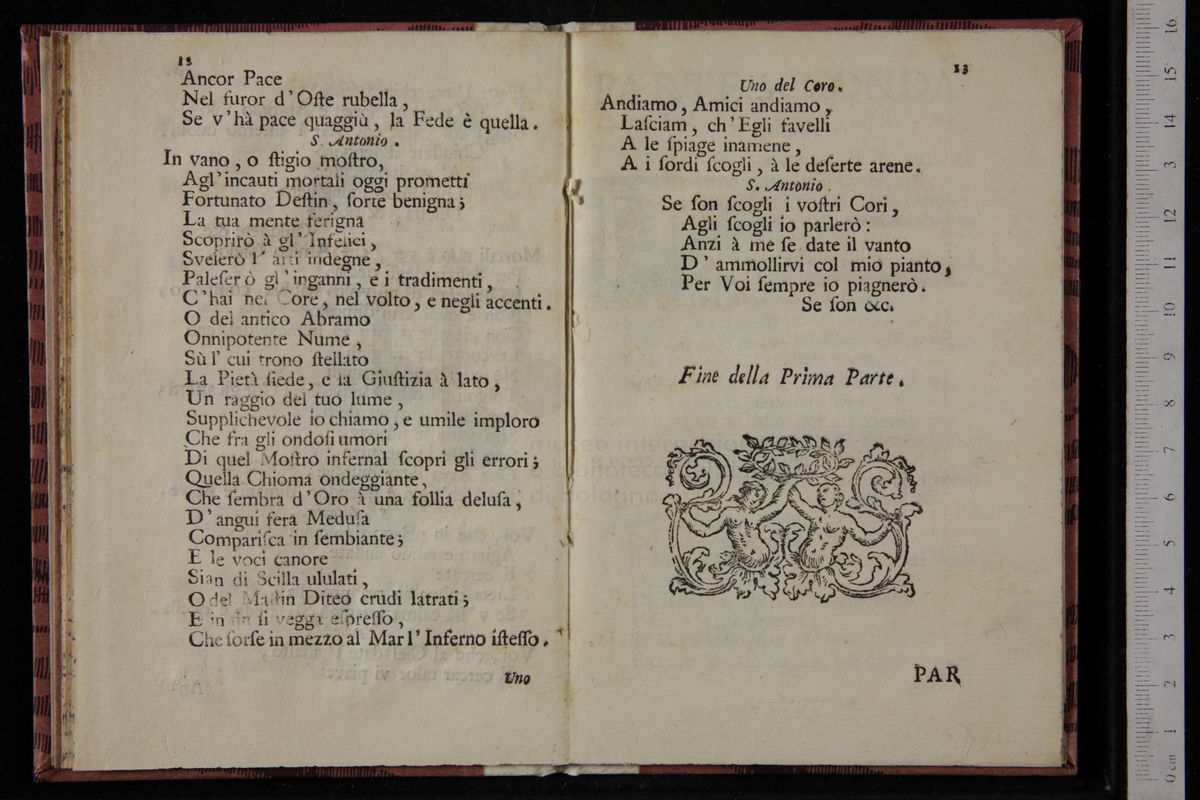 12
Ancor Pace
Nel furor d'Oſte rubella,
Se v'hà pace quaggiù, la Fede è quella.
S. Antonio.
In vano, o ſtigio moſtro,
Agl'incauti mortali oggi prometti
Fortunato Deſtin, ſorte benigna;
La tua mente ferigna
Scoprirò à gl'Infelici,
Svelerò l'arti indegne,
Paleſerò gl'inganni, e i tradimenti,
C'hai nel Core, nel volto, e negli accenti.
O del antico Abramo
Onnipotente Nume,
Sù l'cui trono ſtellato
La Pietà ſiede, e la Giuſtizia à lato,
Un raggio del tuo lume,
Supplichevole io chiamo, e umile imploro
Che fra gli ondoſi umori
Di quel Moſtro infernal ſcopri gli errori;
Quella Chioma ondeggiante,
Che ſembra d'Oro à una follia deluſa,
D'angui fera Meduſa
Compariſca in ſembiante;
E le voci canore
Sian di Scilla ululati,
O del Maſtin Diteo crudi latrati;
E in ſin ſi vegga eſpreſſo,
Che ſorſe in mezzo al Mar l'Inferno iſteſſo.
Uno
13
Uno del Coro.
Andiamo, Amici andiamo,
Laſciam, ch'Egli favelli
A le ſpiage inamene,
A i ſordi ſcogli, à le deſerte arene.
S. Antonio.
Se ſon ſcogli i voſtri Cori,
Agli ſcogli io parlerò:
Anzi à me ſe date il vanto
D'ammollirvi col mio pianto,
Per Voi ſempre io piagnerò.
Se ſon &c.
Fine della Prima Parte.
PAR
museo internazionale
biblioteca
di bologna
0 cm 1 2 3 4 5 6 7 8 9 10 11 12 13 14 15 16